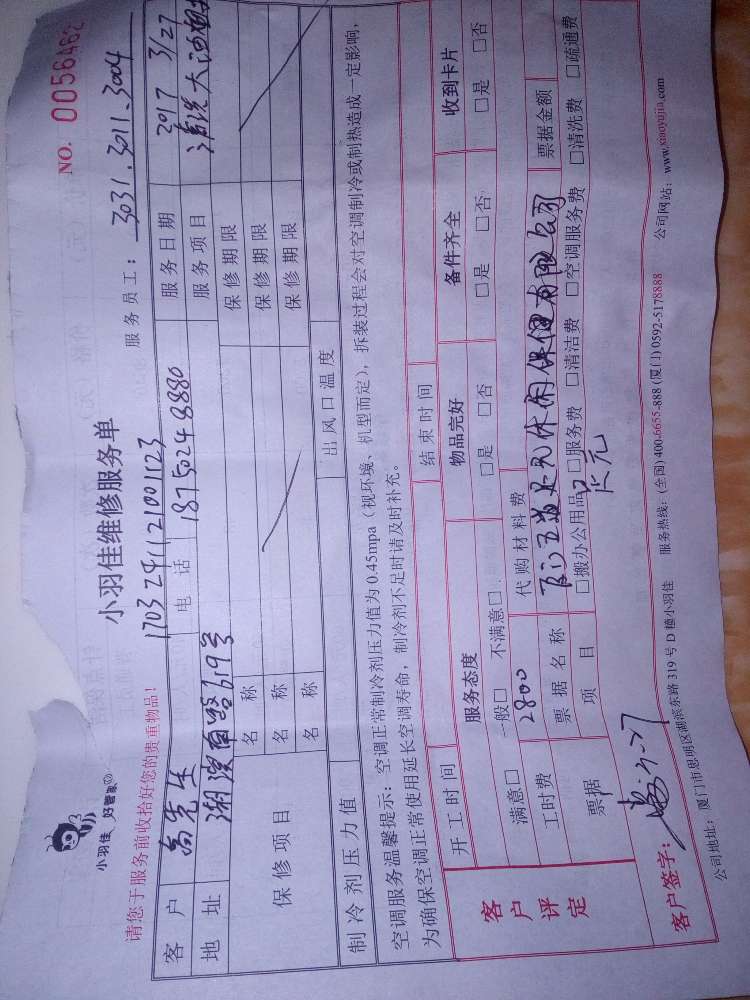 小羽佳 好管家
小羽佳维修服务单
NO. 0056462
请您于服务前收拾好您的贵重物品!
1703241121001123
服务员工: 3031.3011.3004
客户 高先生 电话 18750248880 服务日期 2017 3/27
地址 湖滨南路619号 服务项目 清洗大油烟
保修项目 名称 保修期限
名称 保修期限
名称 保修期限
制冷剂压力值 出风口温度
空调服务温馨提示: 空调正常制冷剂压力值为 0.45mpa (视环境、机型而定), 拆装过程会对空调制冷或制热造成一定影响,
为确保空调正常使用延长空调寿命, 制冷剂不足时请及时补充。
开工时间 结束时间
客户评定 服务态度 物品完好 备件齐全 收到卡片
满意□ 一般□ 不满意□ □是 □否 □是 □否 □是 □否
工时费 2800 代购材料费
票据 票据名称 休闲保健有限公司 票据金额
项目 □搬办公用品 □服务费 □清洁费 □空调服务费 □清洗费 □疏通费
客户签字:
公司地址: 厦门市思明区湖滨东路 319 号 D 幢小羽佳 服务热线: (全国) 400-6655-888 (厦门) 0592-5178888 公司网站: www.xiaoyujia.com